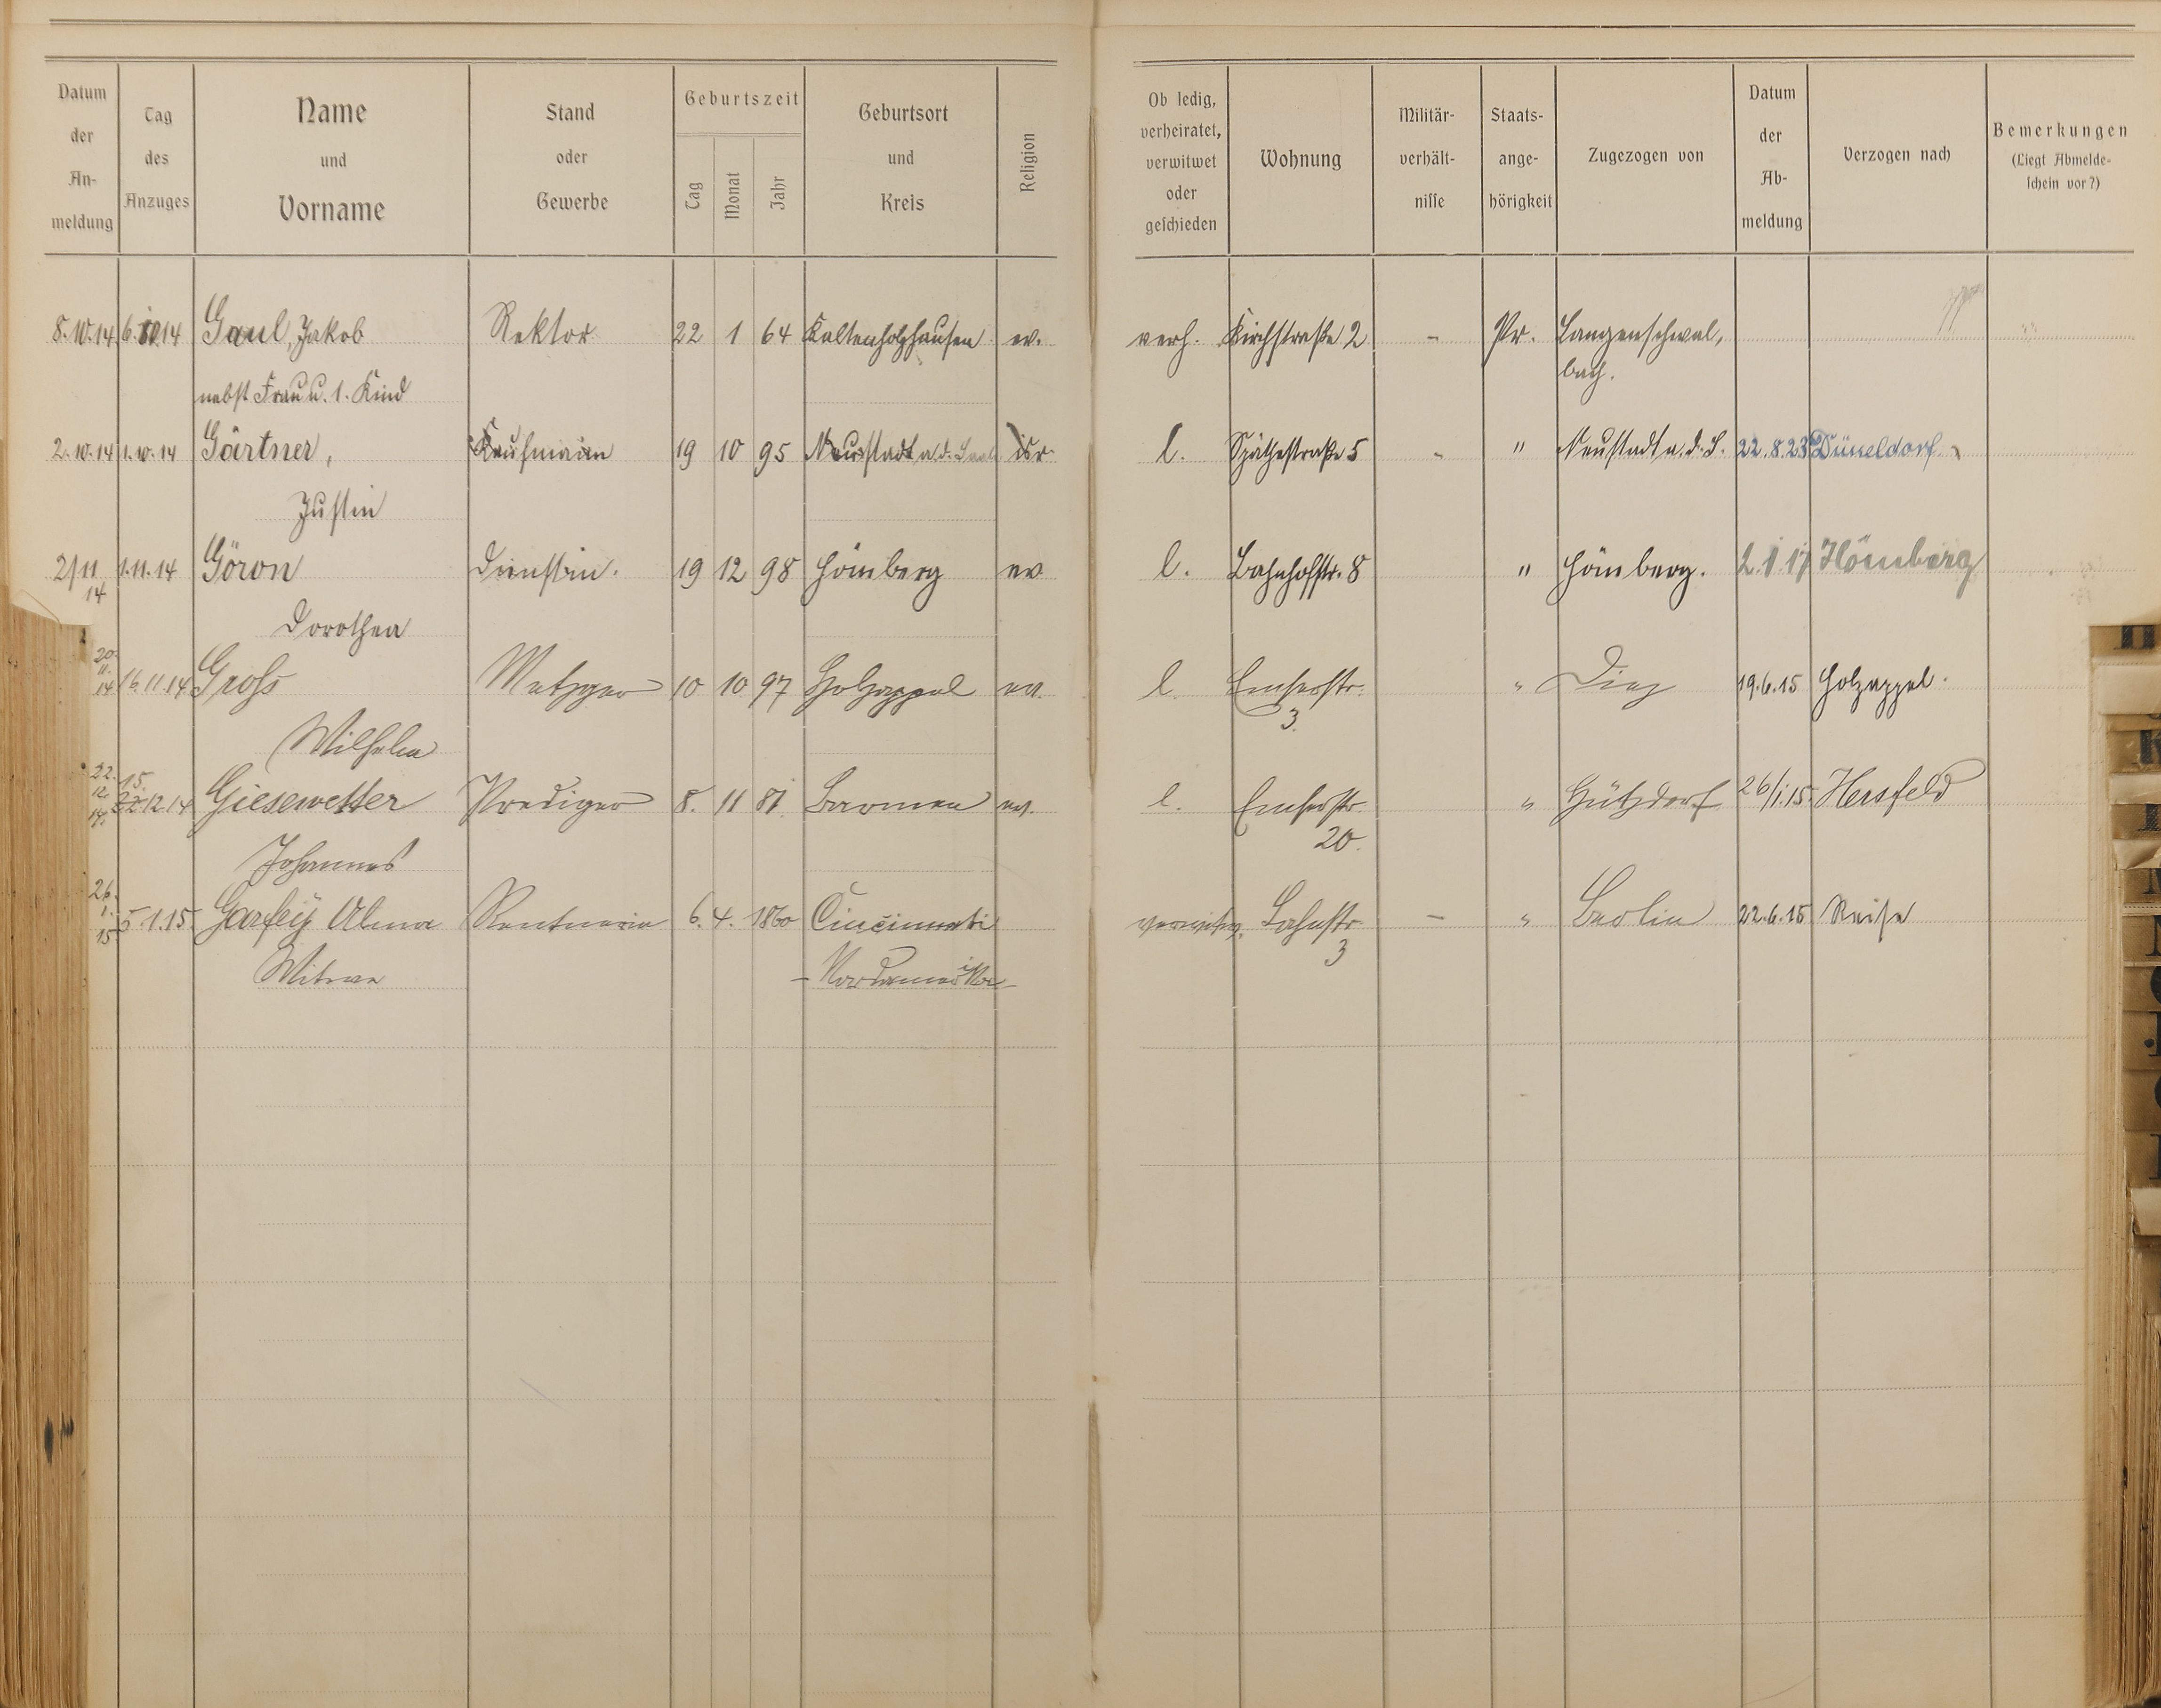 Datum der Anmeldung | Tag des Anzuges | Name und Vorname | Stand oder Gewerbe | Geburtszeit Tag Monat Jahr | Geburtsort und Kreis | Religion | Ob ledig, verheiratet, verwitwet oder geschieden | Wohnung | Militärverhältnisse | Staatsangehörigkeit | Zugezogen von | Datum der Abmeldung | Verzogen nach | Bemerkungen (Liegt Abmeldeschein vor?)
8.10.14 | 6.10.14 | Gaul, Jakob | Rektor | 22 | 1 | 64 | Kaltenholzhausen | ev. | verh. | Kirchstraße 2 | - | Pr. | Langenschwal,
nebst Frau u. 1. Kind | bach.
2.10.14 | 1.10.14 | Gärtner, | Kaufmann | 19 | 10 | 95 | Neustadt a. d. Saale | isr. | l. | Späthestraße 5 | - | " | Neustadt a. d. S. | 22.8.23 | Düsseldorf
Justin
2/11 14 | 1.11.14 | Göron | Dienstm. | 19 | 12 | 98 | Hömberg | ev | l. | Bahnhofstr. 8 | " | Hömberg. | 2.1.17 | Hömberg
Dorothea
20. 11. 14 | 16.11.14 | Groß | Metzger | 10 | 10 | 97 | Holzappel | ev. | l. | Emserstr. | " | Diez | 19.6.15 | Holzappel.
Wilhelm | 3.
22. 12. 14. | 15. 22.12.14 | Giesewetter | Prediger | 8. | 11 | 81 | Barmen | ev. | l. | Emserstr. | " | 26/1.15. | Hersfeld
Johannes | 20.
26. 1. 15 | 5.1.15. | Alma | Rentnerin | 6. | 4. | 1860 | Cincinnati | verwitw. | Lahnstr. | - | " | Berlin | 22.6.15 | Reise
Witwe | - Nordamerika - | 3